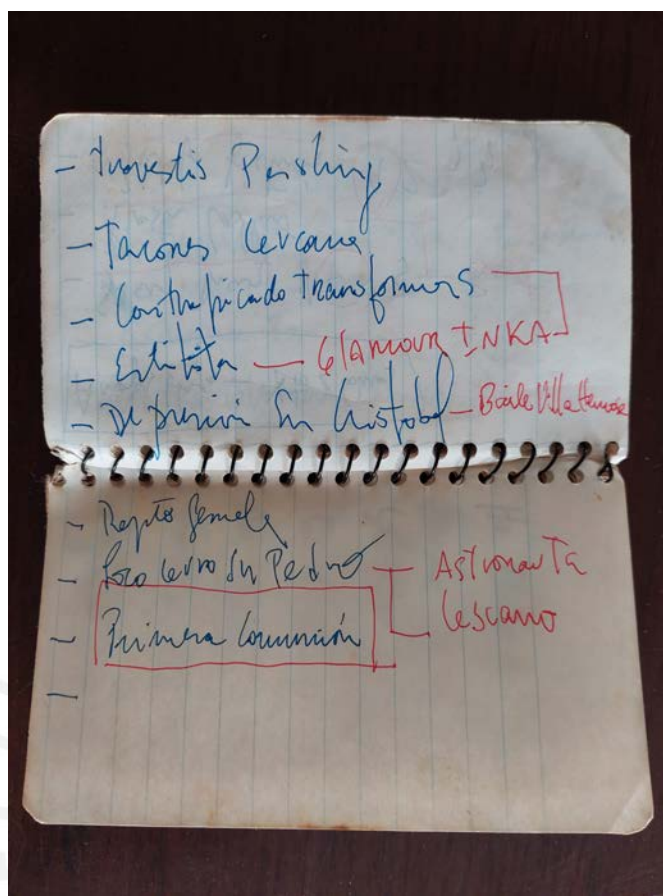 - Travestis Pershing
- Tacones Cercana
- Contrapicado Transformers
- Estilista — Glamour INKA
- Depresión Sn Cristobal — Baile Villa Hermosa
- Rapto Gemela
- Loco cerro Sn Pedro — Astronauta
Lescano
- Primera Comunión
-